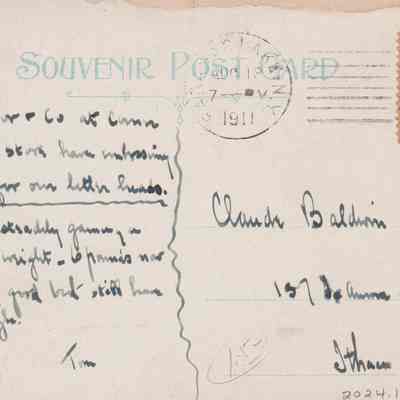 SOUVENIR POST CARD
1911
- Co at Corner
store have embossing
for our letter heads.
steadily gaining in
weight - 6 pounds now
good but still have
Tom
Claude Baldwin
157 Aurora
Ithaca
2024.1